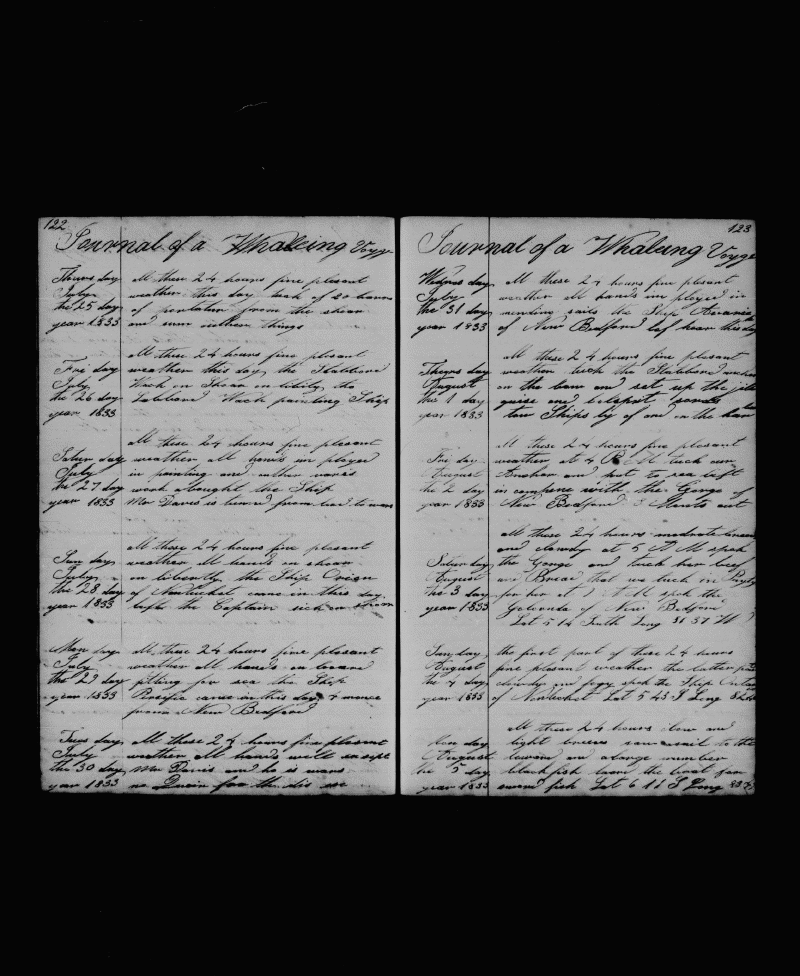 122
Journal of a Whaleing Voyge
Thurs day All these 24 hours fine plesant
July weather this day took of 20 barrs
the 25 day of pertators from the shear
year 1833 and sum uthern things
All these 24 hours fine plesant
Fri day weather this day the Stabbord
July Wach on Shear on libity the
the 26 day Labbord Wach painting Ship
year 1833
All these 24 hours fine plesant
Satur day weather all hands in ployed
July in painting and uther
the 27 day work abought the Ship
year 1833 Mr Davis is turned from bad to wors
All these 24 hours fine plesant
Sun day weather all hands on shear
July on liberty the Ship Orian
the 28 day of Nantucket came in this day
year 1833 left the Captain sick on shear
Mon day All these 24 hours fine pleasant
July weather all hands on board
the 29 day fitting for sea the Ship
year 1833 Pasific came in this day 4 monce
from New Bedford
Tues day All these 24 hours fine plesent
July weather all hands well exsept
the 30 day Mr Davis and he is wors
year 1833 no for the
123
Journal of a Whaleing Voyge
Wednes day All these 24 hours fine plesant
July weather all hands im ployed in
the 31 day mending sails the Ship
year 1833 of New Bedford lef hear this day
All these 24 hours fine plesant
Thurs day weather tuck the Stabbord
August on the bow and set up the jib
the 1 day guise and
year 1833 tow Ships by of and on the
All these 24 hours fine plesant
Fri day weather at 4 P M tuck our
August Anchor and put to sea left
the 2 day in compene with the Gorge of
year 1833 New Bedford 3 Months out
All these 24 hours modrate breses
and clowdy at 5 P M spok
Satur day the Gorge and tuck her beef
August and Bread that we tuck in
the 3 day for her at A M spok the
year 1833 Golconda of New Bedford
Lat 5 14 South Long 81 57 W
Sunday the first part of these 24 hours
August fine plesant weather the latter part
the 4 day clowdy and fogy spok the Ship
year 1833 of Nantucket Lat 5 43 S Long
All these 24 hours clow and
Mon day light breses saw a sail to the
August loward and a large number
the 5 day black fish loard the boat for
year 1833 fish Lat 6 11 S Long